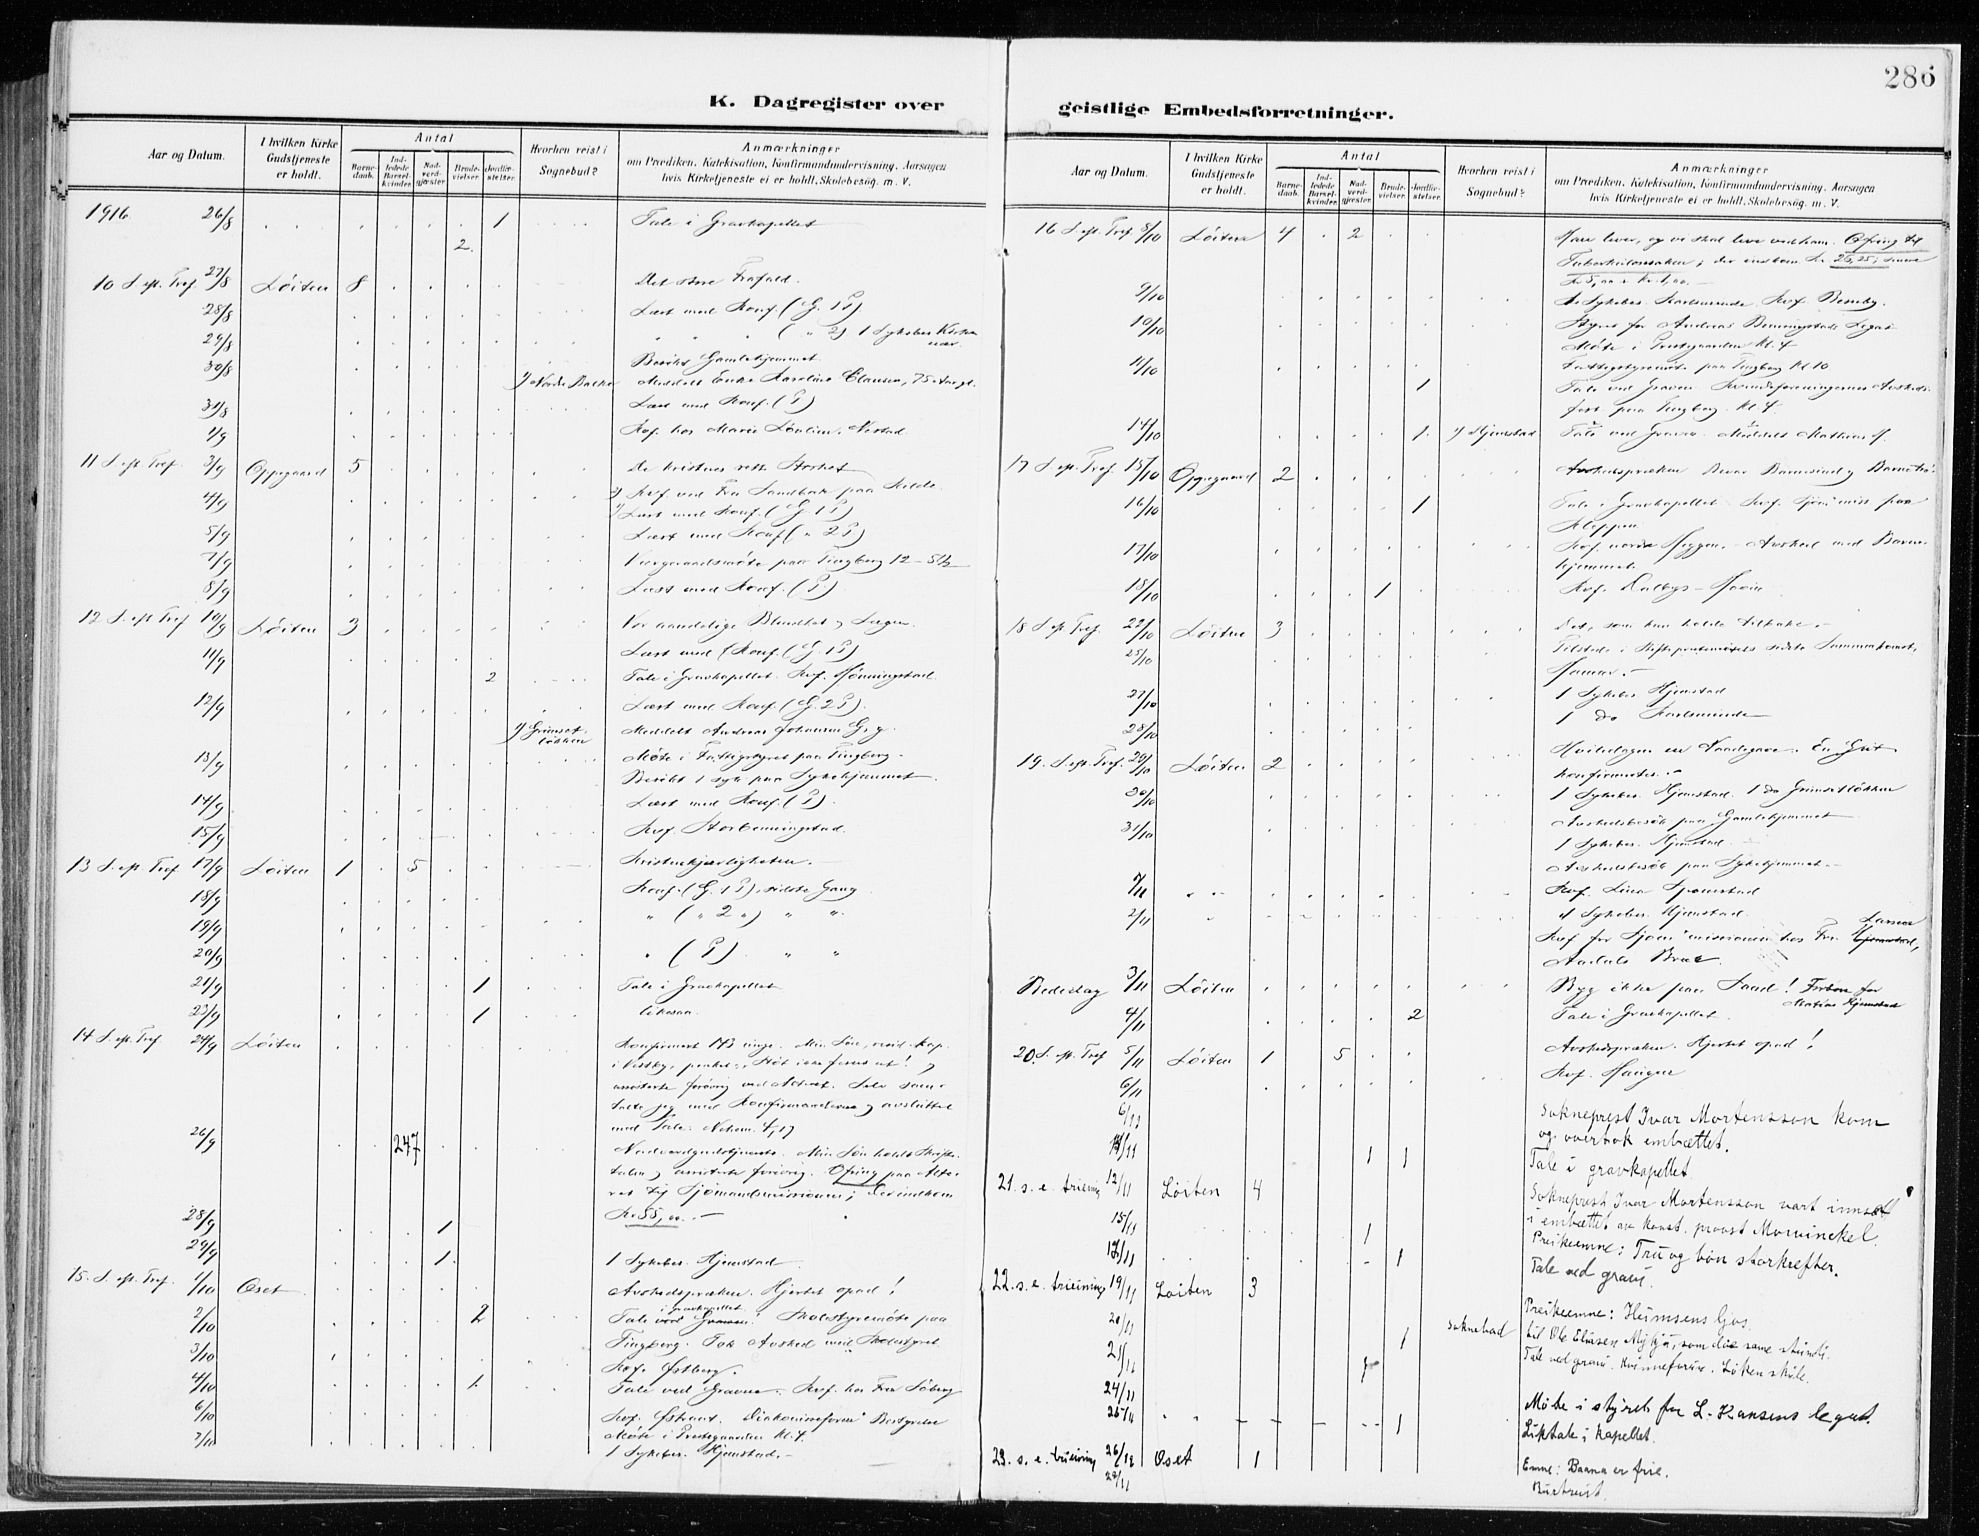 286
K. Dagregister over geistlige Embedsforretninger.
Aar og Datum.
I hvilken Kirke Gudstjeneste er holdt.
Antal
Barnedaab.
Indledede Barselkvinder.
Nadverdgjæster
Brudevielser.
Jordfæstelser.
Hvorhen reist i Sognebud?
Anmærkninger
om Prædiken, Katekisation, Konfirmandundervisning, Aarsagen
hvis Kirketjeneste ei er holdt, Skolebesøg. m. V.
1916. 26/8 1 Tale i Gravkapellet
2
10 S. eft. Tref. 27/8 Løiten 8 Det store Frafald.
28/8 Læst med Konf. (G. 1 P)
29/8 " " " ( " 2) 1 Sykeber.
30/8 Besøkt Gamlehjemmet
Meddelt Enke Karoline Clausen, 75 Aar gl.
31/8 Læst med Konf. (P)
1/9 Kof. hos Marie
11 S. eft. Tref. 3/9 Oppegaard 5 De kristnes rette
4/9 Kof. ved Fru Sandbæk paa Kilde.
Læst med Konf. (G. 1 P)
5/9 Læst med Konf. ( " 2 P)
7/9 Vergeraadsmøte paa Tingberg 12 – 5½
8/9 Læst med Konf. (P)
12 S. eft. Tref. 10/9 Løiten 3 Vor aandelige Blindhet og Lægen.
11/9 Læst med Konf. (G. 1 P)
2 Tale i Gravkapellet. Kof. Hønningstad
12/9 Læst med Konf. (G. 2 P)
Grimsetløkken Meddelt Andreas Johansen
13/9 Møte i Fattigstyret paa Tingberg.
Besøkt 1 syk paa Sykehjemmet
14/9 Læst med Konf. (P).
15/9 Kof. Storbenningstad.
13 S. eft. Tref. 17/9 Løiten 1 5 Kristenkjærligheten.
18/9 Konf. (G. 1 P), sidste Gang
19/9 " ( " 2 " ) " "
20/9 " (P). " "
21/9 1 Tale i Gravkapellet
23/9 1 likesaa.
14 S. eft. Tref. 24/9 Løiten Konfirmert 143 unge. Min Søn, resid. kap.
i Vestby, præket: "Støt ikke Jesus ut"! og
assisterte forøvrig ved Alteret. Selv samtalte jeg med Konfirmanderne og avsluttet
med Tale: Nehem. 4,17
26/9 247 Nadverdgudstjeneste. Min Søn holdt Skriftetalen og assisterte forøvrig. Ofring paa Alteret til Sjømandsmissionen; der indkom
Kr. 55,00. –
28/9 1
29/9 1 1 Sykeber. Hjemstad.
15 S. eft. Tref. 1/10 Oset Avskedspræken. Hjertet opad!
2/10 2 Tale i gravkapellet. Skolestyremøte paa
Tingberg. Tok Avsked med Skolestyret.
3/10 Kof. Østberg.
4/10 1 Tale ved Graven. Kof. hos Fru Søberg
6/10 Møte i Prestegaarden Kl. 4.
7/10 1 Sykeber. Hjemstad. –
Aar og Datum.
I hvilken Kirke Gudstjeneste er holdt.
Antal
Barnedaab.
Indledede Barselkvinder.
Nadverdgjæster
Brudevielser.
Jordfæstelser.
Hvorhen reist i Sognebud?
Anmærkninger
om Prædiken, Katekisation, Konfirmandundervisning, Aarsagen
hvis Kirketjeneste ei er holdt. Skolebesøg. m. V.
16 S. eft. Tref. 8/10 Løiten 4 2 Han lever, og vi skal leve ved ham. Ofring til
Tuberkulosesaken; der indkom Kr. 26,25;
9/10 1 Sykeber. Karlsminde. Kof. Berreby.
10/10 Styret for Andreas Benningstads Legat
Møte i Prestegaarden Kl. 4
11/10 Fattigstyremøte paa Tingberg Kl. 10
1 Tale ved Graven. Kvindeforeningernes Avskedsfest paa Tingberg. Kl. 4.
14/10 1 Hjemstad Tale ved Graven. Meddelt Mathias H.
17 S. eft. Tref. 15/10 Oppegaard 2 Avskedspræken. Bevar Barnesind og Barnetro.
16/10 1 Tale i Gravkapellet. Kof. Sjøm. miss. paa
Kloppen
17/10 Kof. nordre Skjggen. – Avsked med Barnehjemmet.
18/10 1 Kof. Dalbye –
18 S. eft. Tref. 22/10 Løiten 3 Det, som kun holde tilbake. –
25/10 Tilstede i Stiftsprestemøtets sidste Sammenkomst,
Hamar. –
27/10 1 Sykeber. Hjemstad
28/10 1 do Karlsminde
19. S. eft. Tref. 29/10 Løiten 2 Hviledagen en Naadegave. En Gut
konfirmertes. –
30/10 1 Sykeber. Hjemstad. 1 do Grimsetløkken
31/10 Avskedsbesøk paa Gamlehjemmet
1 Sykeber. Hjemstad. –
Avskedsbesøk paa Sykehjemmet –
1/11 Kof. Lina Spænstad
2/11 1 Sykeber. Hjemstad.
Kof. for Sjøm. missionen hos Fru Larsen
Aadals Brue.
Bededag 3/11 Løiten Byg ikke paa Sand! Forbøn for
Matias Hjemstad
4/11 2 Tale i Gravkapellet.
20. S. eft. Tref. 5/11 Løiten 1 5 Avskedspræken. Hjertet opad!
6/11 Kof. Hauger
6/11 Sokneprest Ivar Mortensson kom
og overtok embættet.
11/11 1 1 Tale i gravkapellet.
21. s. e. trieining 12/11 Løiten 4 Sokneprest Ivar Mortensson vart innsatt
i embættet av konst. proost Morvinckel.
15/11 1 Preikeemne: Tru og bøn storkrefter.
17/11 1 Tale ved gravi.
22. s. e. trieining 19/11 Løiten 3 Preikeemne: Heimsens ljos.
20/11 soknebud til Ole Eliasen Myhju, som døe same stundi.
21/11 1 Tale ved gravi. Kvinneforen. Løken skule.
24/11 Møte i styret for L. Hansens legat.
25/11 1 Liktale i kapellet.
23. s. e. trieining 26/11 Oset 1 Emne: Baana er frie.
28/11